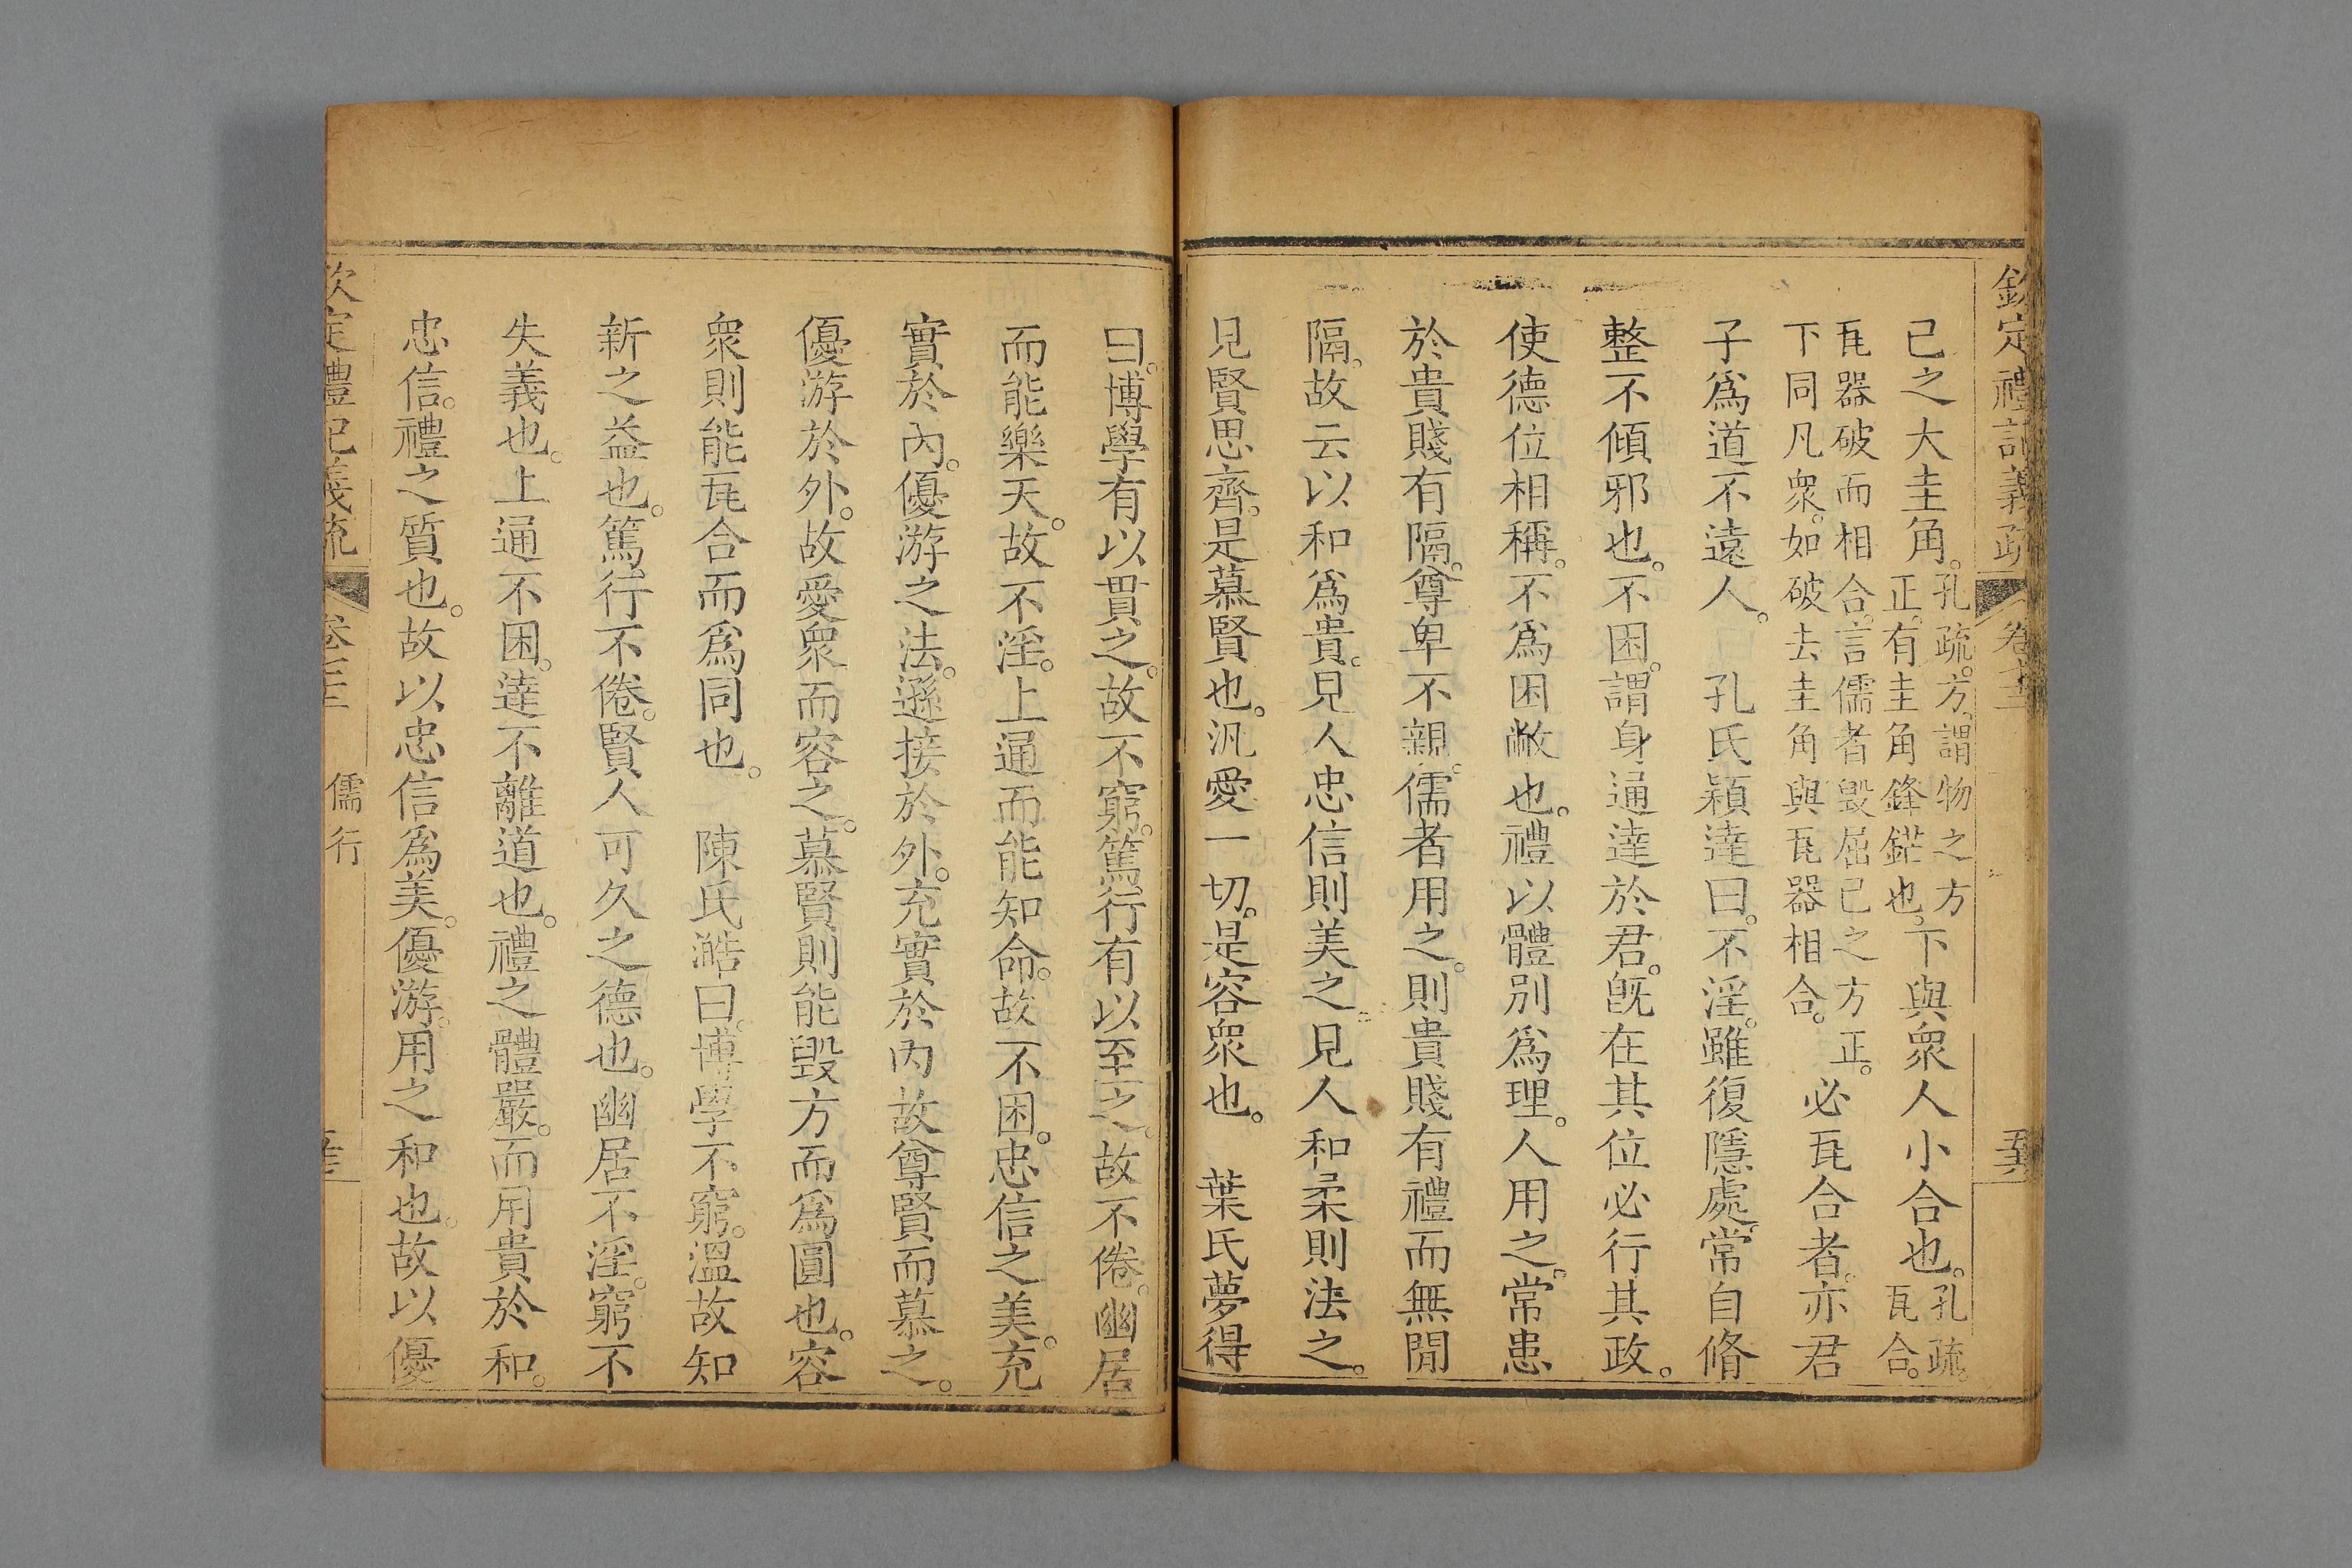 欽定禮記義疏 卷七十三 
己之大圭角。孔疏。方。謂物之方正。有圭角鋒鋩也。下與衆人小合也。孔疏。瓦合。
瓦器破而相合。言儒者毀屈己之方正。下同凡衆。如破去圭角與瓦器相合。必瓦合者。亦君
子爲道不遠人。 孔氏穎達曰。不淫。雖復隱處。常自脩
整不傾邪也。不困。謂身通達於君。旣在其位必行其政。
使德位相稱。不爲困敝也。禮以體別爲理。人用之。常患
於貴賤有隔。尊卑不親。儒者用之。則貴賤有禮而無閒
隔。故云以和爲貴。見人忠信則美之。見人和柔則法之。
見賢思齊。是慕賢也。汎愛一切。是容衆也。 葉氏夢得
曰。博學有以貫之。故不窮。篤行有以至之。故不倦。幽居
而能樂天。故不淫。上通而能知命。故不困。忠信之美。充
實於內。優游之法。遜接於外。充實於內故尊賢而慕之。
優游於外。故愛衆而容之。慕賢則能毀方而爲圓也。容
衆則能瓦合而爲同也。 陳氏澔曰。博學不窮。溫故知
新之益也。篤行不倦。賢人可久之德也。幽居不淫。窮不
失義也。上通不困。達不離道也。禮之體嚴。而用貴於和。
忠信。禮之質也。故以忠信爲美。優游。用之和也。故以優
欽定禮記義疏 儒行